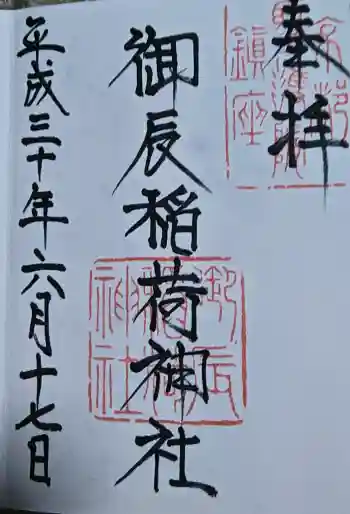 奉拝
御辰稲荷神社
平成三十年六月十七日
鎮座
御辰稲荷神社